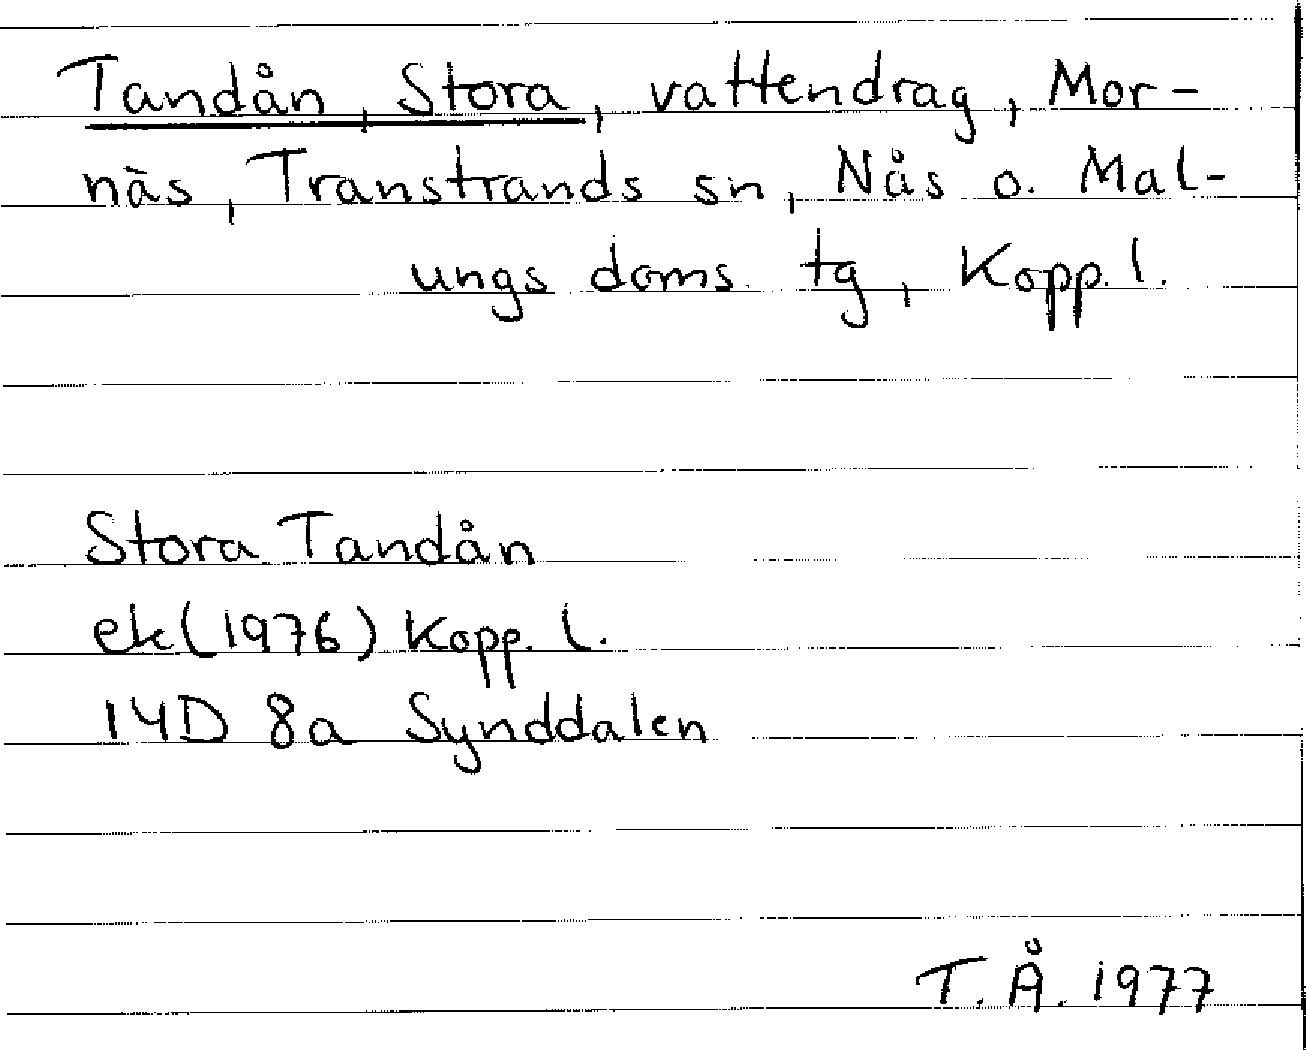 Tandån, Stora, vattendrag, Mor-
näs, Transtrands sn, Nås o. Mal-
ungs doms. tg, Kopp. l.
Stora Tandån
ek (1976) Kopp. l.
14D 8a Synddalen
T. Å. 1977